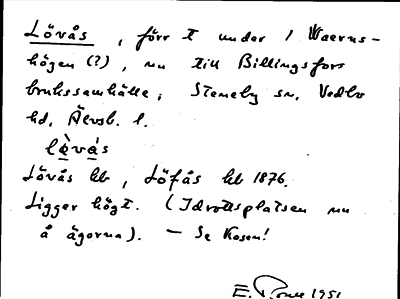 Lövås, förr t under 1 Waerns-
högen (?), nu till Billingsfors
brukssamhälle; Steneby sn, Vedbo
hd, Älvsb. l.
lø̀vás
Lövås kb, Löfås kb 1876.
Ligger högt. (Idrottsplatsen nu
å ägorna). — Se Kosen!
E. 1951